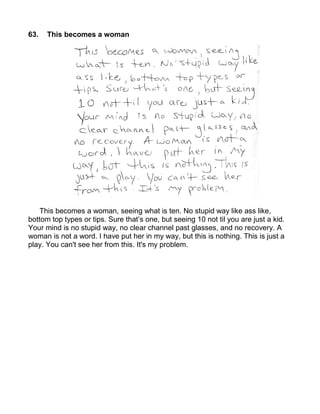 63. This becomes a woman
This becomes a woman, seeing
what is ten. No stupid way like
ass like, bottom top types or
tips. Sure that's one, but seeing
10 not til you are just a kid.
Your mind is no stupid way, no
clear channel past glasses, and
no recovery. A woman is not a
word. I have put her in my
way, but this is nothing. This is
just a play. You can't see her
from this. It's my problem.
This becomes a woman, seeing what is ten. No stupid way like ass like,
bottom top types or tips. Sure that's one, but seeing 10 not til you are just a kid.
Your mind is no stupid way, no clear channel past glasses, and no recovery. A
woman is not a word. I have put her in my way, but this is nothing. This is just a
play. You can't see her from this. It's my problem.